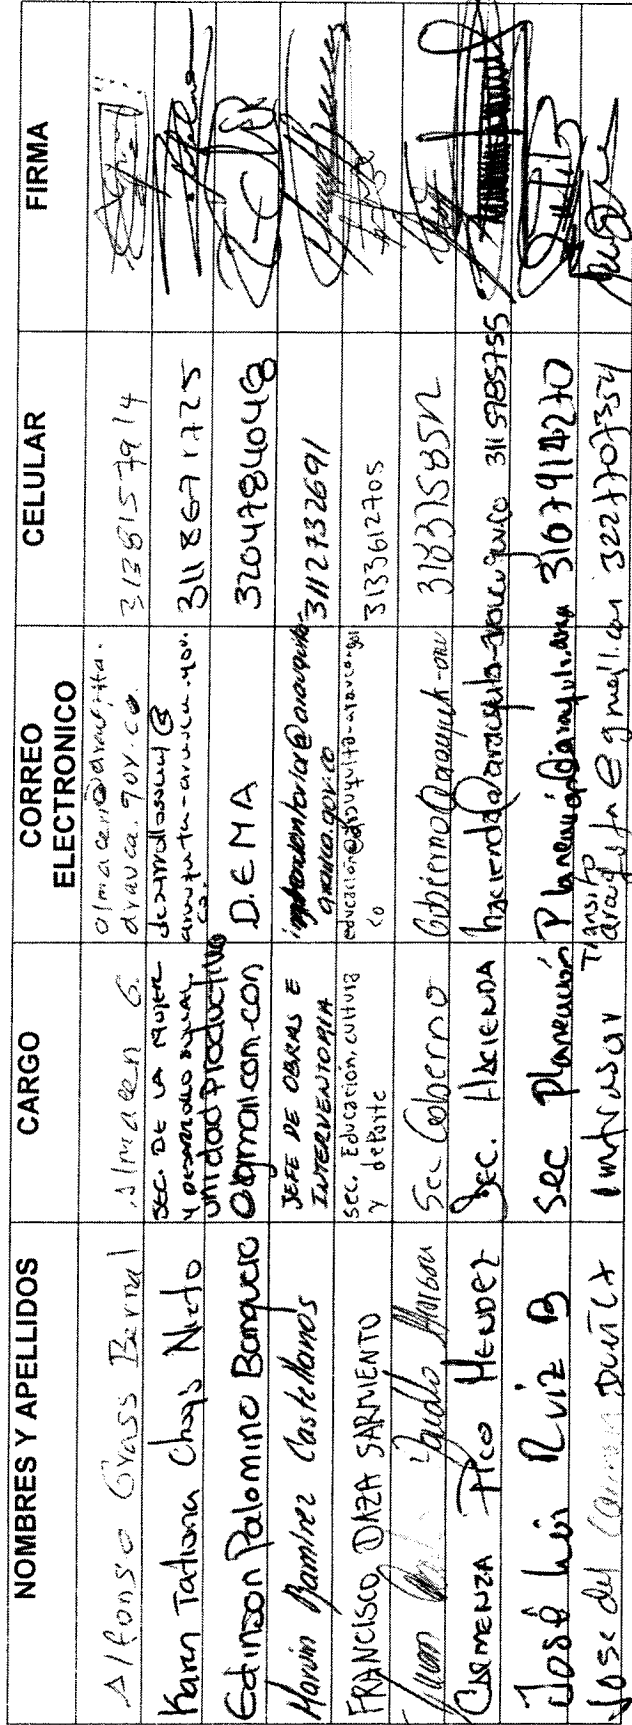 NOMBRES Y APELLIDOS CARGO CORREO ELECTRONICO CELULAR FIRMA
Alfonso Grass Bernal Almacen G. almacen@arauquita-arauca.gov.co 3138157914
Karen Tatiana Chogo Nieto SEC. DE LA MUJER Y DESARROLLO SOCIAL desarrollosocial@arauquita-arauca.gov.co 3118671725
Edinson Palomino Banquero unidad productiva D.E.M.A @gmail.com.con 3204784048
Marvin Ramirez Castellanos JEFE DE OBRAS E INTERVENTORIA @arauquita-arauca.gov.co 3112732691
FRANCISCO DAZA SARMIENTO sec. Educación, cultura y deporte educacion@arauquita-arauca.gov.co 3133612705
Juan Sec Gobierno Gobierno@arauquita-arau
CLEMENZA Pico MENDEZ Sec. HACIENDA hacienda@arauquita-arauca.gov.co 3115785755
José Luis Ruiz B sec Planeación Planeación@arauquita.arau 3167914270
Jose del Carmen Transito arauquita@gmail.com 3227707354